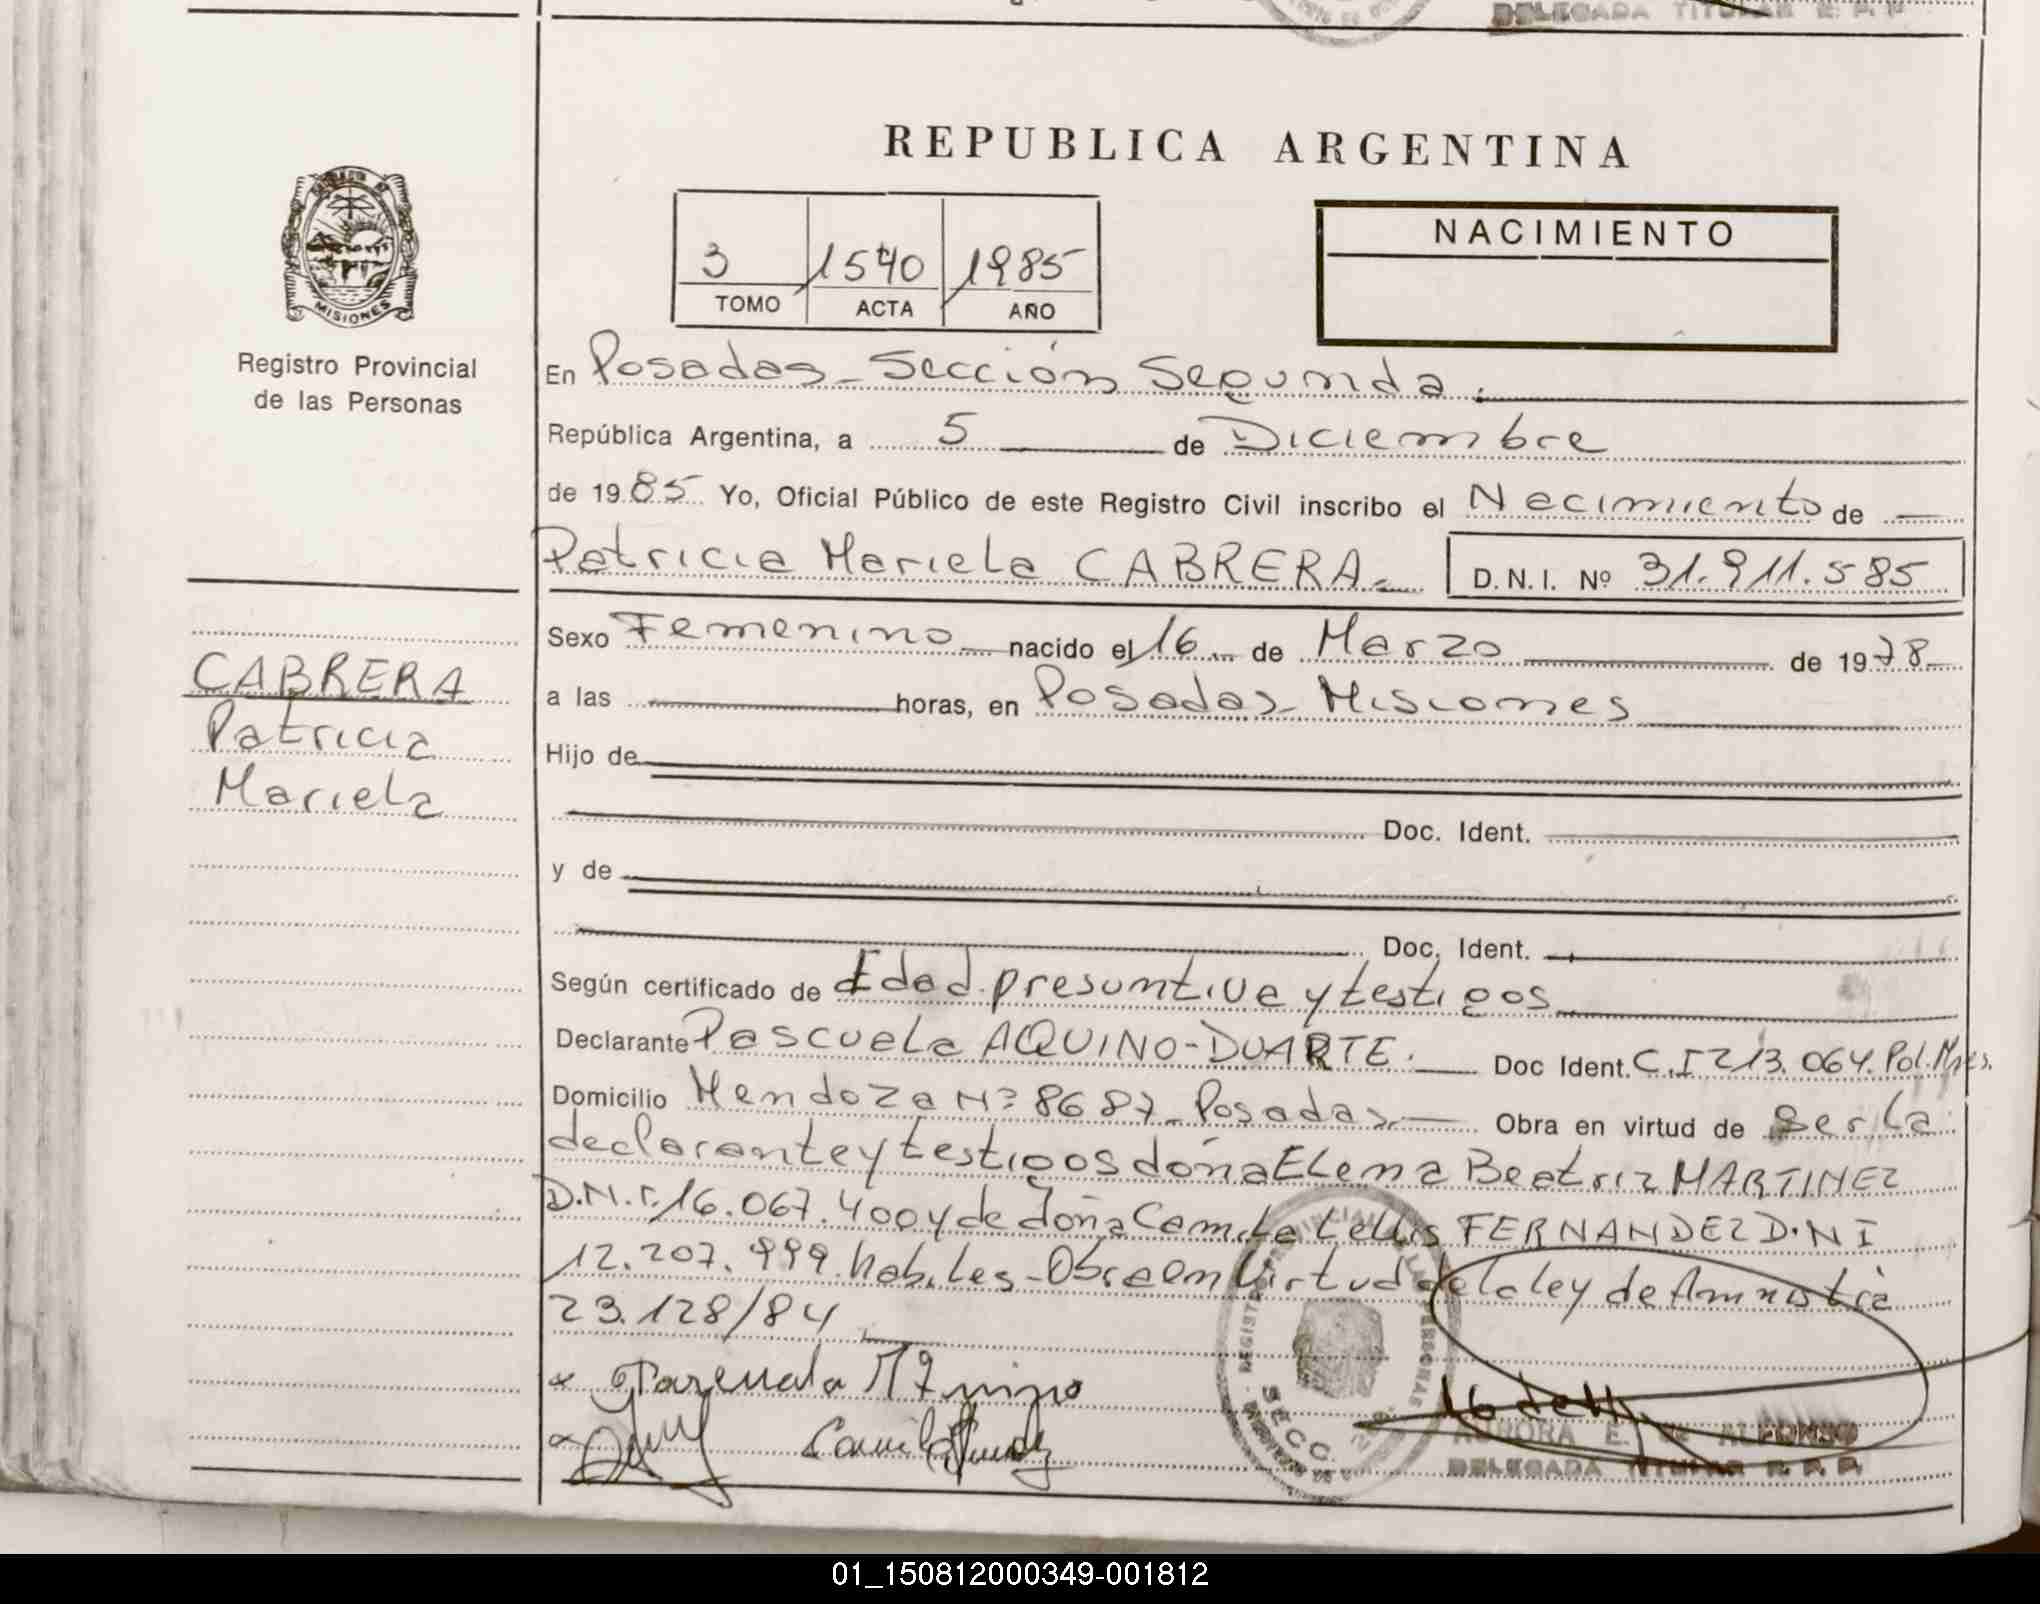 DELEGADA TITULAR R. P. P.
REPUBLICA ARGENTINA
NACIMIENTO
3 1540 1985
TOMO ACTA AÑO
MISIONES
Registro Provincial
de las Personas
En Posadas - Sección Segunda.
República Argentina, a 5 de Diciembre
de 1985 Yo, Oficial Público de este Registro Civil inscribo el Nacimiento de
Patricia Mariela CABRERA.- D.N.I. Nº 31.911.585
CABRERA
Patricia
Mariela
Sexo Femenino nacido el 16 de Marzo de 1978
a las horas, en Posadas - Misiones
Hijo de
Doc. Ident.
y de
Doc. Ident.
Según certificado de Edad presuntiva y testigos
Declarante Pascuala AQUINO-DUARTE. Doc Ident. C.I 213.064. Pol. Mnes.
Domicilio Mendoza Nº 8687 - Posadas Obra en virtud de ser la
declarante y testigos doña Elena Beatriz MARTINEZ
D.N.I. 16.067.400 y de doña Camila FERNANDEZ D.N I
12.207.999 habiles - Obra en Virtud de la ley de Amnistia
23.128/84
REGISTRO PROVINCIAL DE LAS PERSONAS
SECC.
AURORA E. DE ALFONSO
DELEGADA TITULAR R. P. P.
01_150812000349-001812